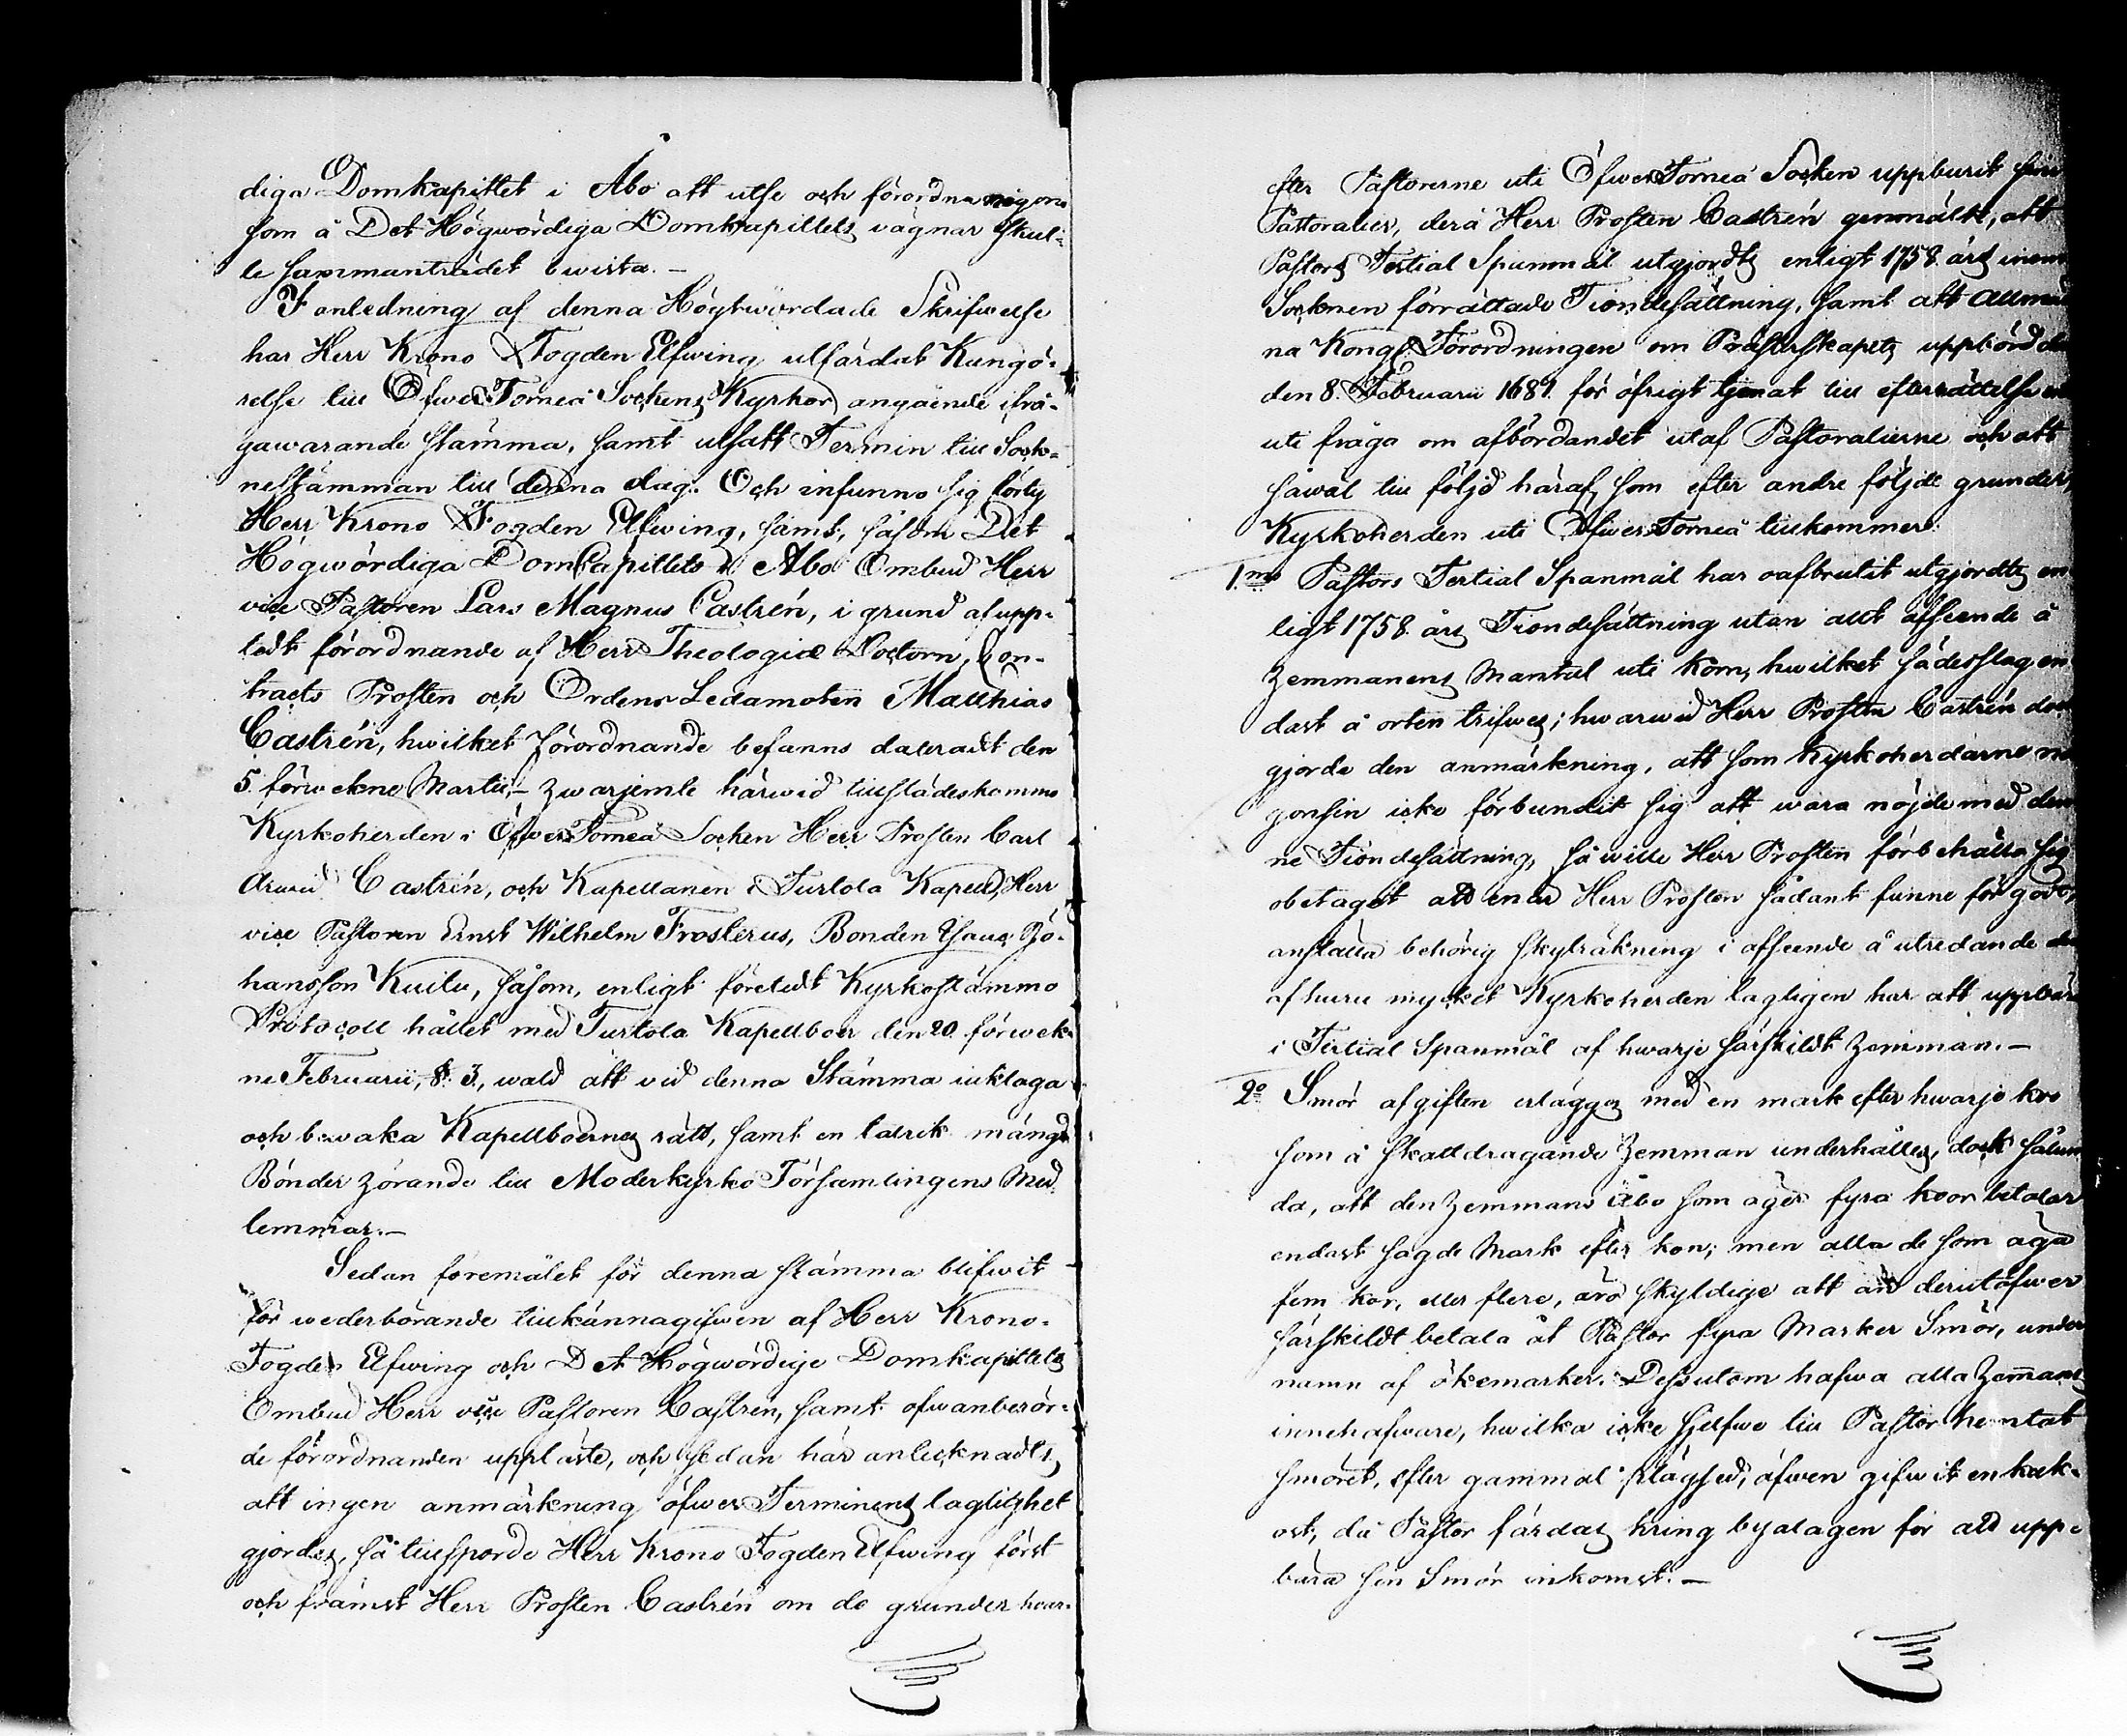 diga Domkapitlet i Åbo att utse och förordna någon
som å Det Högwördiga Domkapitlets vägnar skul-
le sammanträdet bewista.—
I anledning af denna Högtwördade Skrifwelse
har Herr Krono Fogden Elfwing utfärdat Kungö-
relse till Öfwer Torneå Sockens Kyrkor angående ifrå-
gawarande stämma, samt utsatt Termin till Sock-
nestämman till denna dag. Och infunno sig förty
Herr Krono Fogden Elfwing, samt, såsom Det
Högwördiga DomCapitlets i Åbo Ombud Herr
vice Pastoren Lars Magnus Castrén, i grund af upp-
tedt förordnande af Herr Theologiæ Doctorn, Con-
tracts Prosten och Ordens Ledamoten Matthias
Castrén, hwilket förordnande befanns dateradt den
5. förwekne Martii,— hwarjemte härwid tillstädeskommo
Kyrkoherden i Öfwer Torneå Socken Herr Prosten Carl
Arwid Castrén, och Kapellanen i Turtola Kapell, Herr
vice Pastoren Ernst Wilhelm Frosterus, Bonden Isaac Jo-
hansson Kuilu, såsom, enligt företedt Kyrkostämmo
Protocoll hållet med Turtola Kapellboer den 20. förwek-
ne Februarii, §. 3., wald att vid denna Stämma iakttaga
och bewaka Kapellboernes rätt, samt en talrik mängd
Bönder hörande till Moderkyrko Församlingens Med-
lemmar.—
Sedan föremålet för denna stämma blifwit
för wederbörande tillkännagifwen af Herr Krono-
Fogden Elfwing och Det Högwördige Domkapitlets
Ombud Herr vice Pastoren Castrén, samt ofwanberör-
de förordnanden uppläste, och sedan här antecknadts,
att ingen anmärkning öfwer Terminens laglighet
gjordes, så tillsporde Herr Krono Fogden Elfwing först
och främst Herr Prosten Castrén om de grunder hwar-
efter Pastorerne uti Öfwer Torneå Socken uppburit sine
Pastoralier, derå Herr Prosten Castrén genmälte, att
Pastors Tertial Spanmål utgjordts enligt 1758. års inom
Socknen förrättade Tiondesättning, samt att Allmän
na Kongl. Förordningen om Prästerskapets uppbörd
den 8. Februarii 1681. för öfrigt tjenat till efterrättelse
uti fråga om afbördandet utaf Pastoralierne och att
såwäl till följd häraf, som efter andre följde grunder,
Kyrkoherden uti Öfwer Torneå tillkommer:
1.mo Pastors Tertial Spanmål har oafbrutit utgjordts en
ligt 1758. års Tiondesättning utan allt afseende å
Hemmanens Mantal uti Korn, hwilket sädesslag en
dast å orten trifwes; hwarwid Herr Prosten Castrén dock
gjorde den anmärkning, att som Kyrkoherdarne nå
gonsin icke förbundit sig att wara nöjde med den
ne Tiondesättning, så wille Herr Prosten förbehålla sig
obetaget att när Herr Prosten sådant funne för godt,
anställa behörig skylräkning i afseende å utredande
af huru mycket Kyrkoherden lagligen har att uppbära
i Tertial Spanmål af hwarje särskildt Hemman.—
2.o Smör afgiften erlägges med en mark efter hwarje ko
som å skattdragande Hemman underhålles, dock sålun
da, att den Hemmans Åbo som äger fyra koor betalar
endast sagde Mark efter kon; men alla de som äga
fem kor, eller flere, äro skyldige att än derutöfwer
särskildt betala åt Pastor fyra Marker Smör, under
namn af ökemarker. Dessutom hafwa alla Hemmans
innehafware, hwilka icke sjelfwe till Pastor hemtat
smöret, efter gammal plägsed, äfwen gifwit en kak-
ost, då Pastor färdas kring byalagen för att upp-
bära sin Smör inkomst.—